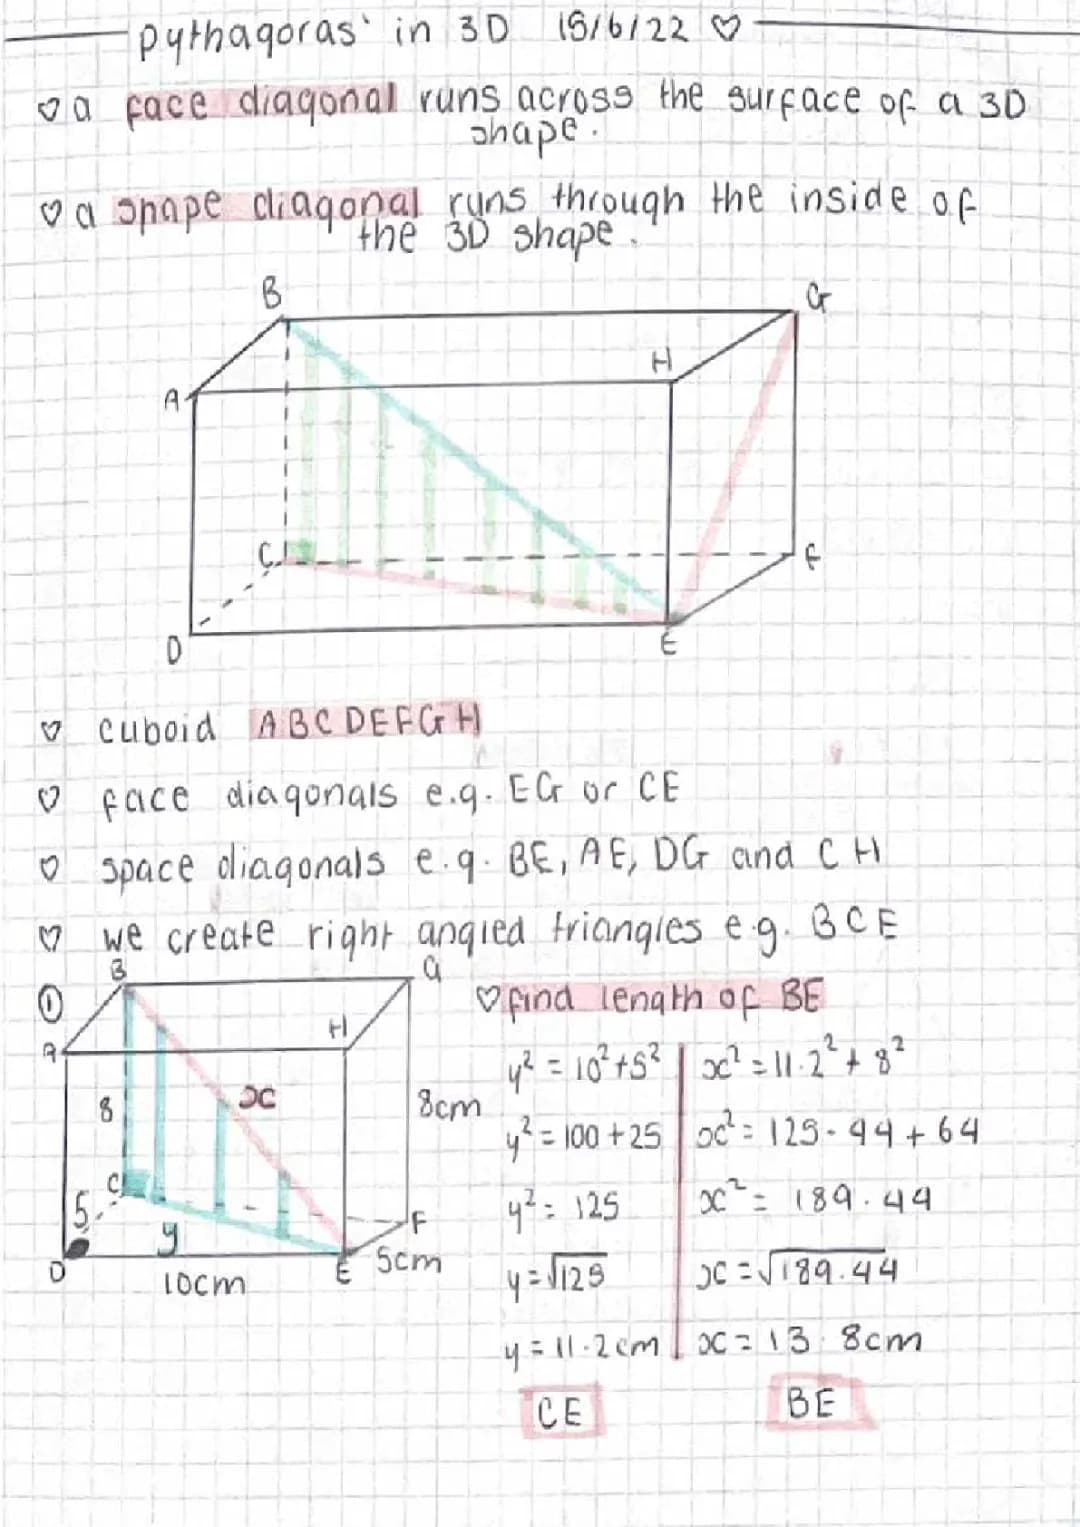 pythagoras' in 3D 15/6/22 ♡
♡ a face diagonal runs across the surface of a 3D
shape.
♡ a space diagonal runs through the inside of
the 3D shape.
B
G
H
A
C
F
D
E
♡ cuboid ABCDEFGH
♡ face diagonals e.g. EG or CE
♡ space diagonals e.g. BE, AE, DG and CH
♡ we create right angled triangles e.g. BCE
① B G
♡ find length of BE
A H
y² = 10²+5² x² = 11.2² + 8²
8 x 8cm
y² = 100 + 25 x² = 125.44 + 64
C
5 y F
y² = 125 x² = 189.44
D 10cm E 5cm
y = √125 x = √189.44
y = 11.2cm x = 13.8cm
CE BE